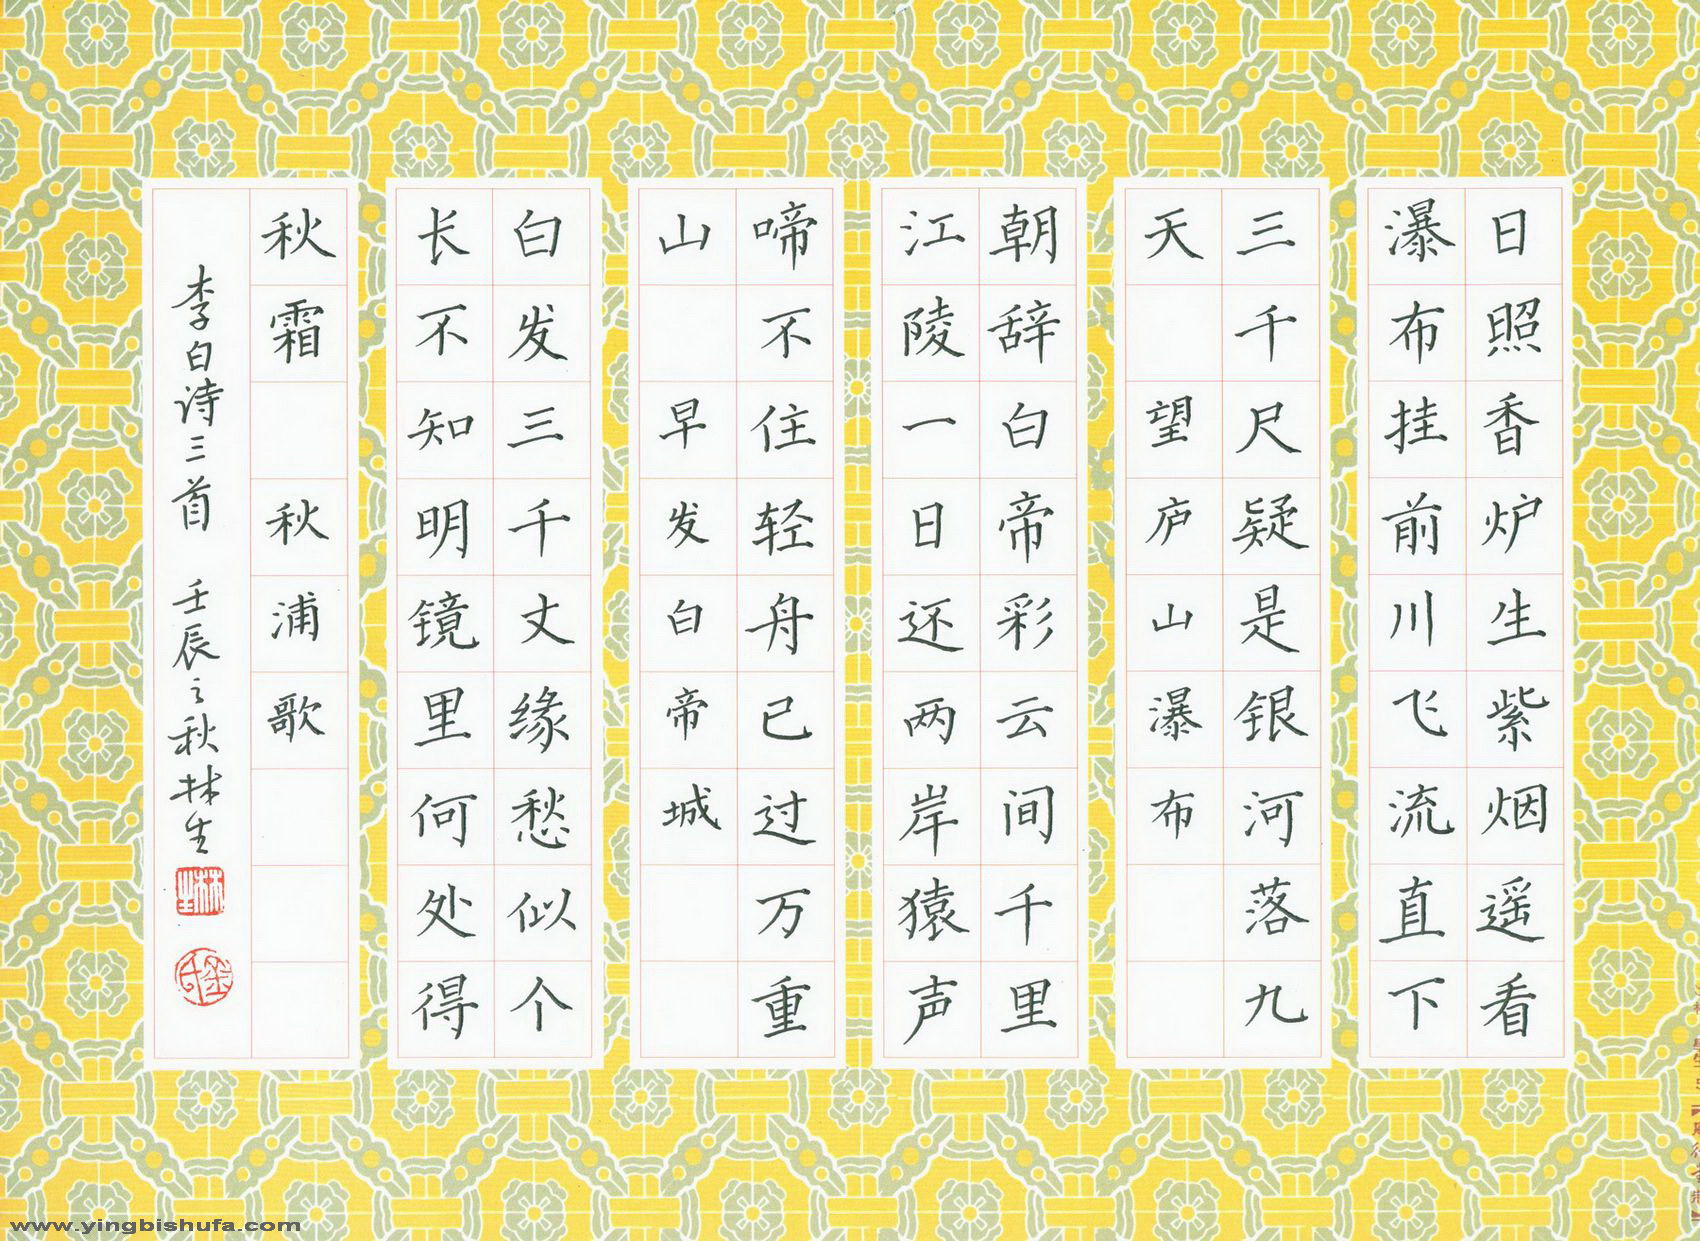 日照香炉生紫烟遥看
瀑布挂前川飞流直下
三千尺疑是银河落九
天 望庐山瀑布
朝辞白帝彩云间千里
江陵一日还两岸猿声
啼不住轻舟已过万重
山 早发白帝城
白发三千丈缘愁似个
长不知明镜里何处得
秋霜 秋浦歌
李白诗三首 壬辰之秋林生
www.yingbishufa.com